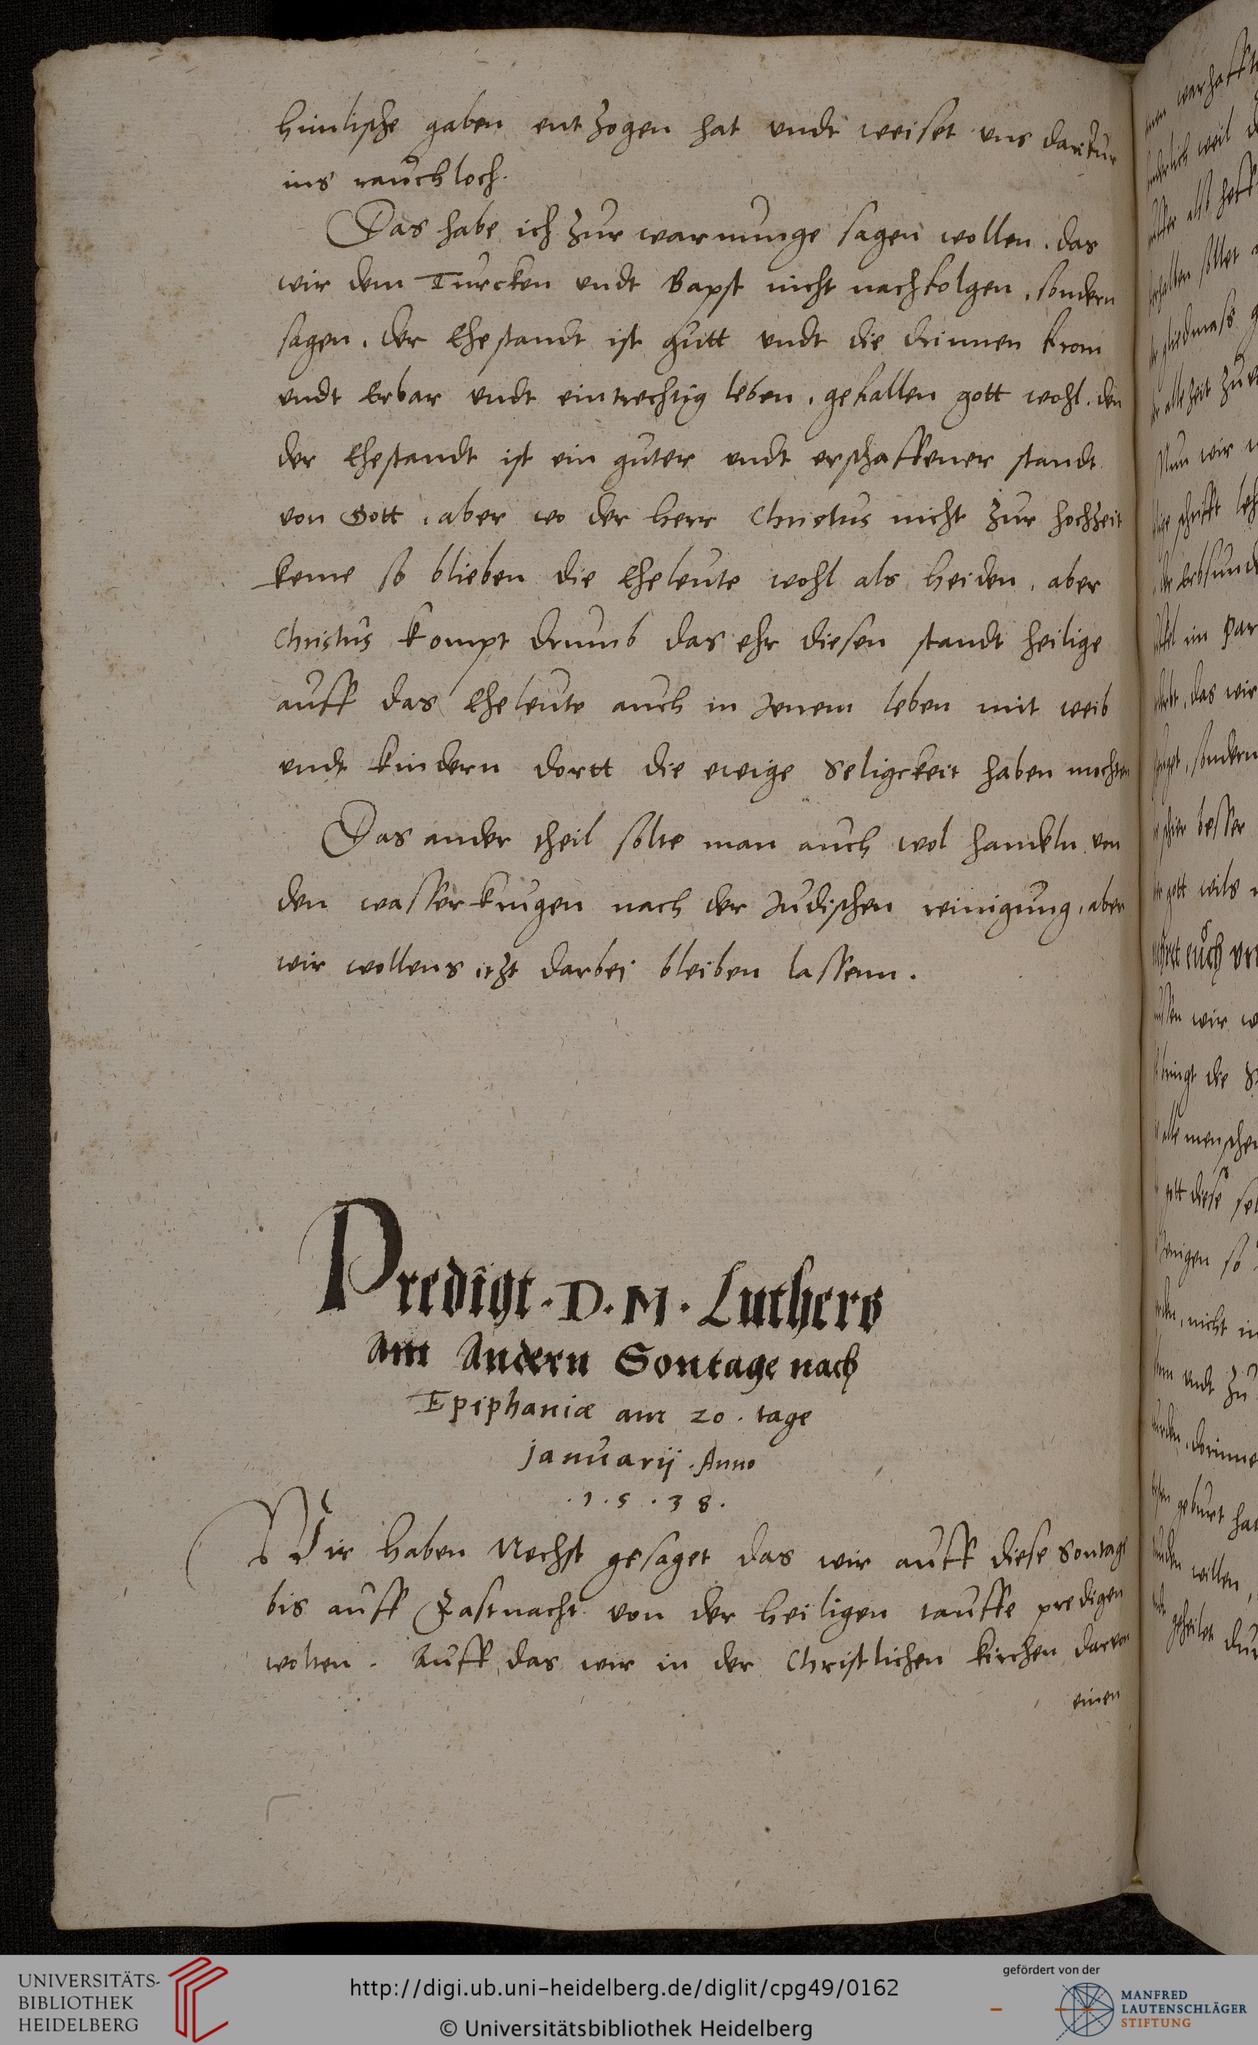 himlische gaben entzogen hat undt weiset uns darfur
ins rauchloch.
Das habe ich zur warnunge sagen wollen, das
wir dem Turcken undt Bapst nicht nachfolgen, sondern
sagen, der Ehestandt ist gutt undt die drinnen from
undt Erbar undt eintrechtig leben, gefallen gott wohl, den
der Ehestandt ist ein guter undt erschaffener standt
von Gott, aber wo der herr Christus nicht zur hochzeit
keme so blieben die Eheleute wohl als heiden, aber
Christus kompt drumb das ehr diesen standt heilige
auff das Eheleute auch in Jenem leben mit weib
undt kindern dortt die ewige Seligckeit haben mochten
Das ander theil solte man auch wol handeln von
den wasserkrugen nach der Judischen reinigung, aber
wir wollens itzt darbei bleiben lassenn.
Predigt. D. M. Luthers
Am Andern Sontage nach
Epiphaniæ am 20. tage
januarij. Anno
.1.5.38.
Wir haben Nechst gesaget das wir auff diese Sontage
bis auff Fastnacht von der heiligen tauffe predigen
wolten. Auff das wir in der Christlichen kirchen darvon
einen
UNIVERSITÄTS-
BIBLIOTHEK
HEIDELBERG
http://digi.ub.uni-heidelberg.de/diglit/cpg49/0162
© Universitätsbibliothek Heidelberg
gefördert von der
MANFRED
LAUTENSCHLÄGER
STIFTUNG